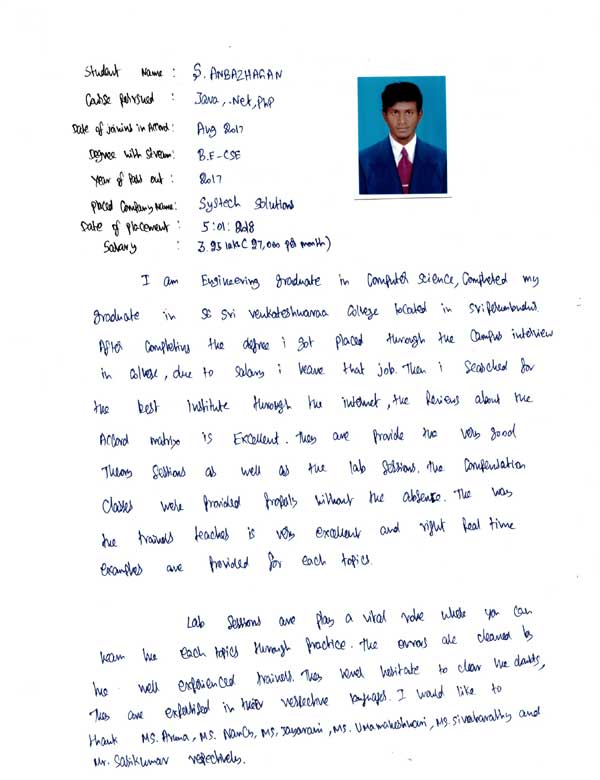 Student Name : S. ANBAZHAGAN
Course Pursued : Java, .Net, PHP
Date of joining in Accord : Aug 2017
Degree with Stream : B.E-CSE
Year of Pass out : 2017
Placed Company Name : Systech Solutions
Date of placement : 5:01:2018
Salary : 3.25 laks ( 27,000 per month)
I am Engineering graduate in Computer Science, Completed my
graduate in Sri Venkateshwaraa College located in Sriperumbudur.
After Completing the degree i got placed through the Campus interview
in College, due to Salary i leave that job. Then i Searched for
the best institute through the internet, the Reviews about the
Accord matrix is Excellent. They are Provide the very good
Theory Sessions as well as the lab Sessions. the Compensation
Classes were Provided Properly without the absence. The way
the trainers teaches is very excellent and right Real time
examples are Provided for each topics.
Lab Sessions are play a vital role where you can
learn the each topics through Practice. The errors are cleared by
the well experienced trainers. They never hesitate to clear the doubts,
They are expertised in their respective languages. I would like to
thank MS. Aruna, MS. Nancy, MS. Jayarani, MS. Umamaheshwari, MS. Sivabarathy and
Mr. Sasikumar respectively.